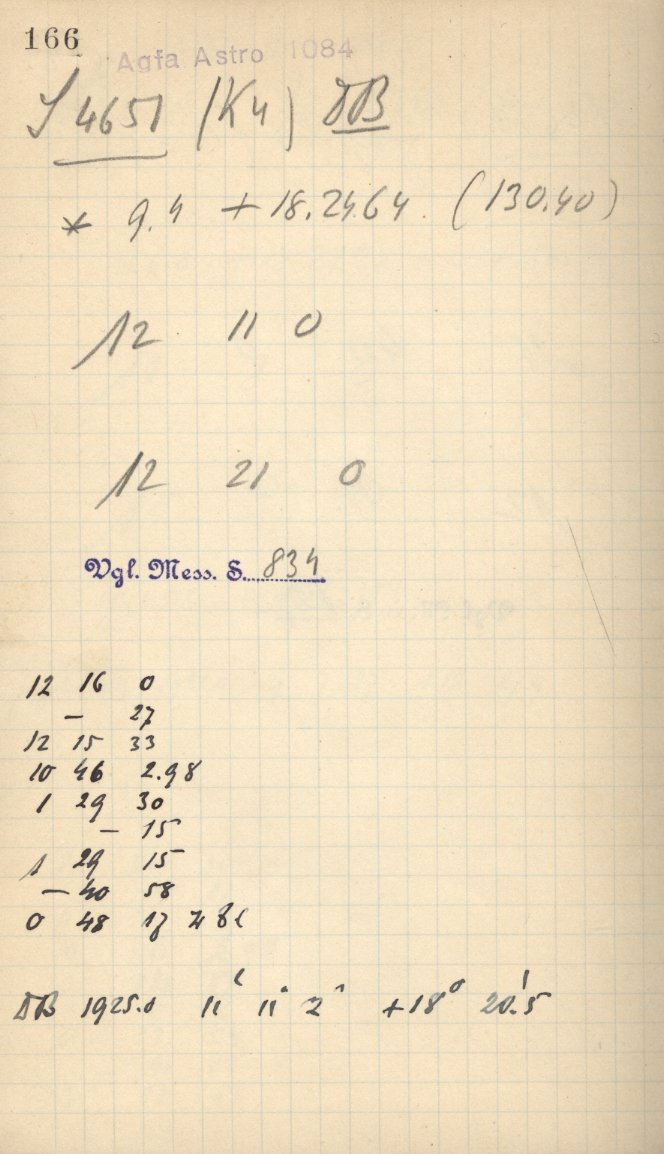 166
Agfa Astro 1084
S 4651 (K4) DB
* 9.4 +18.2464 (130.40)
12 11 0
12 21 0
Vgl. Mess. S. 834
12 16 0
— 27
12 15 33
10 46 2.98
1 29 30
— 15
1 29 15
— 40 58
0 48 17
DB 1925.0 11 11 2 +18° 20.'5